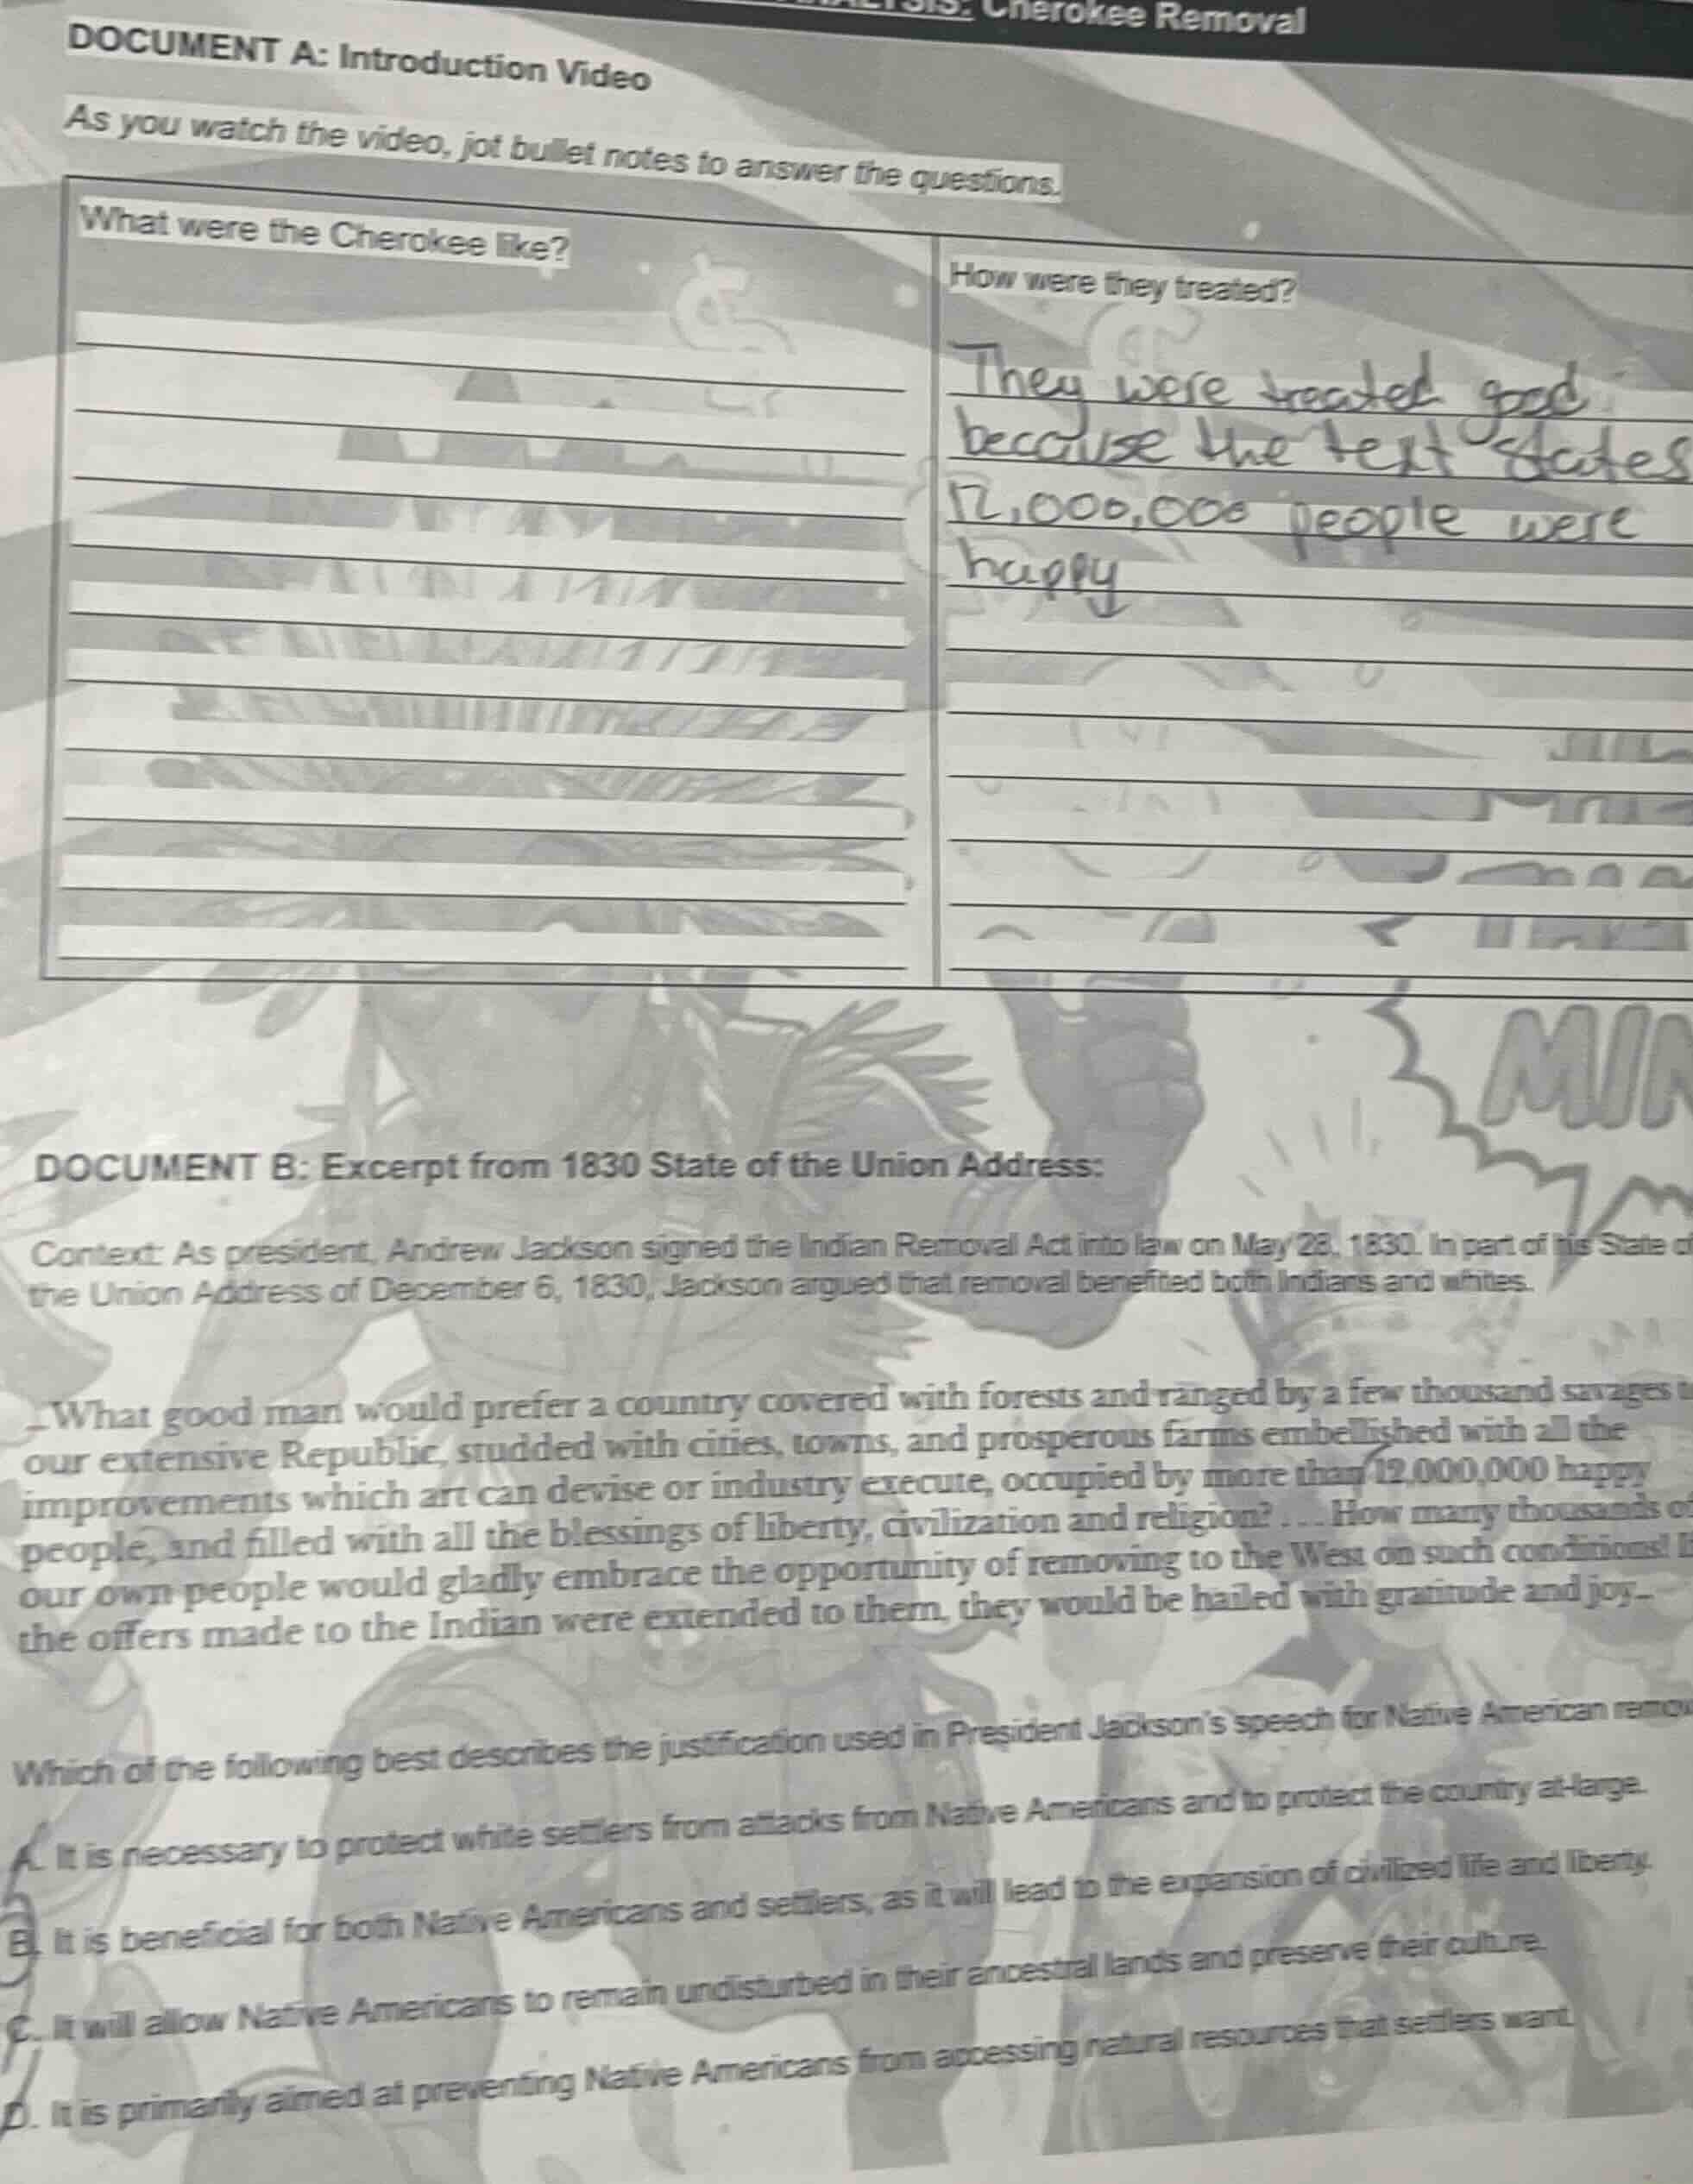 Cherokee Removal
DOCUMENT A: Introduction Video
As you watch the video, jot bullet notes to answer the questions.
What were the Cherokee like?
How were they treated?
They were treated good
because the text states
12,000,000 people were
happy
MIN
DOCUMENT B: Excerpt from 1830 State of the Union Address:
Context: As president, Andrew Jackson signed the Indian Removal Act into law on May 28, 1830. In part of his State of
the Union Address of December 6, 1830, Jackson argued that removal benefited both Indians and whites.
...What good man would prefer a country covered with forests and ranged by a few thousand savages
our extensive Republic, studded with cities, towns, and prosperous farms embellished with all the
improvements which art can devise or industry execute, occupied by more than 12,000,000 happy
people, and filled with all the blessings of liberty, civilization and religion? . . . How many thousands of
our own people would gladly embrace the opportunity of removing to the West on such conditions!
the offers made to the Indian were extended to them, they would be hailed with gratitude and joy...
Which of the following best describes the justification used in President Jackson's speech for Native American
A. It is necessary to protect white settlers from attacks from Native Americans and to protect the country at-large.
B. It is beneficial for both Native Americans and settlers, as it will lead to the expansion of civilized life and liberty.
C. It will allow Native Americans to remain undisturbed in their ancestral lands and preserve their culture.
D. It is primarily aimed at preventing Native Americans from accessing natural resources that settlers want.